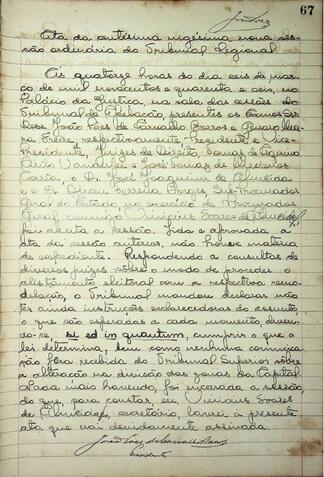 67
Ata da centésima vigésima nona ses-
são ordinária do Tribunal Regional
Ás quatorze horas do dia seis de mar-
ço de mil novecentos e quarenta e seis, no
Palácio da Justiça, na sala das sessões do
Tribunal de Apelação, presentes os Exmos Srs
Des João Paes de Carvalho Barros e Genaro
Freire, respectivamente, Presidente e Vice-
Presidente, Juizes de Direito, Tomaz de Aquino
e José Tomaz de Medeiros
Correia, o Dr. José Joaquim de Almeida
e o Dr. Dirceu Ferreira Borges, Sub-Procurador
Geral do Estado, no exercício de Procurador
Geral, comigo Vinicius Soares de Almeida,
foi aberta a sessão. Lida e aprovada a
ata da sessão anterior, não houve matéria
de expediente. Respondendo a consultas de
diversos juizes sobre o modo de proceder o
alistamento eleitoral com a respectiva remo-
delação, o Tribunal mandou declarar não
ter ainda instruções esclarecedoras do assunto,
o que são esperadas a cada momento, deven-
do-se, si et in quantum, cumprir o que a
lei determina, bem como nenhuma comunica-
ção fora recebida do Tribunal Superior sobre
a alteração na divisão das zonas da Capital.
Nada mais havendo, foi encerrada a sessão,
do que, para constar, eu, Vinicius Soares
de Almeida, secretário, lavrei a presente
ata que vai devidamente assinada.
João Paes de Carvalho Barros
Presidente